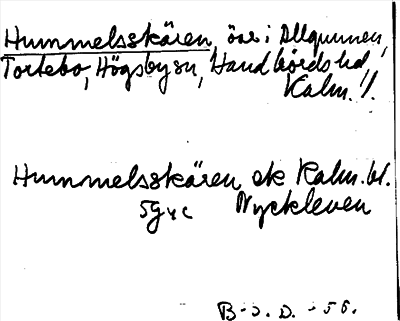 Hummelsskären, öar i Allgunnen,
Tortebo, Högsby sn, Handbörds hd,
Kalm. l.
Hummelsskären ek Kalm. bl.
5gyc Nyckleven
B-s. D. -56.